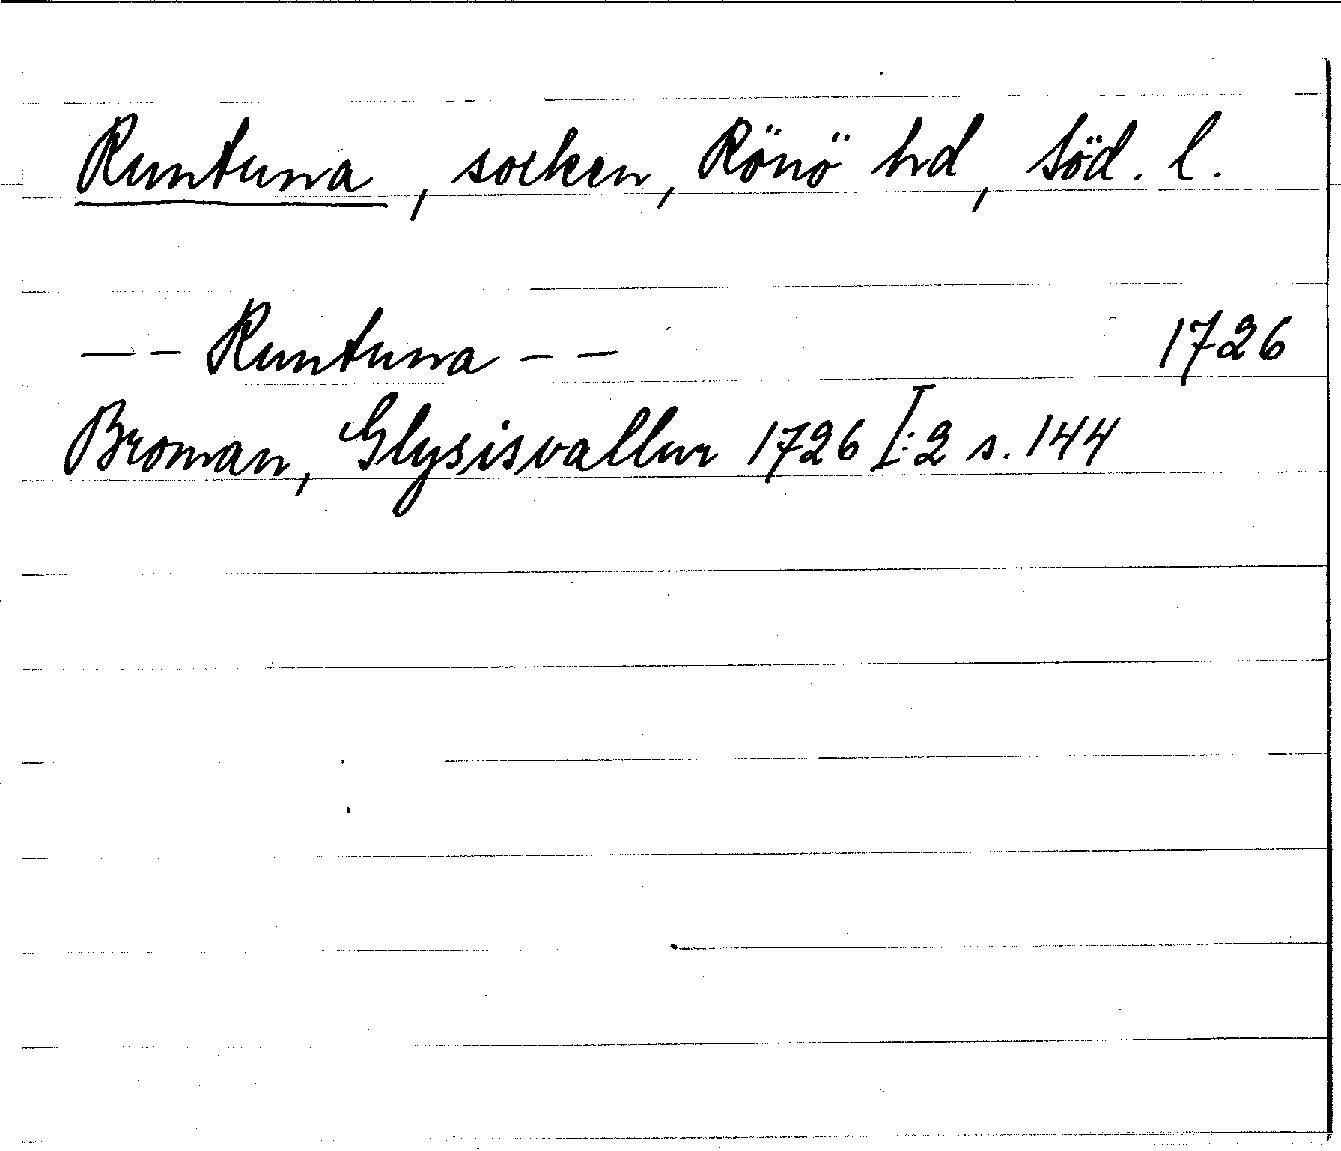 Runtuna, socken, Rönö hd, Söd. l.
— – Runtuna – — 1726
Broman, Glysisvallur 1726 I:2 s. 144